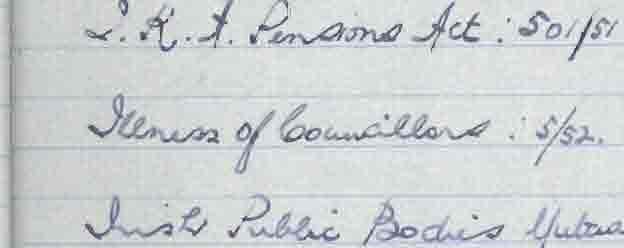 I. R. A. Pensions Act : 501/51
Illness of Councillors : 5/52.
Irish Public Bodies Mutua